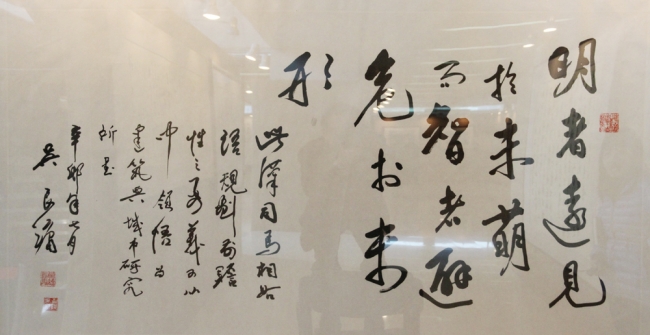 明者遠見
於未萌
而智者避
危於未
形
此漢司馬相如
語規劃前瞻
性之要義可从
中領悟為
建筑與城市研究
所書
辛卯年七月
吳良鏞